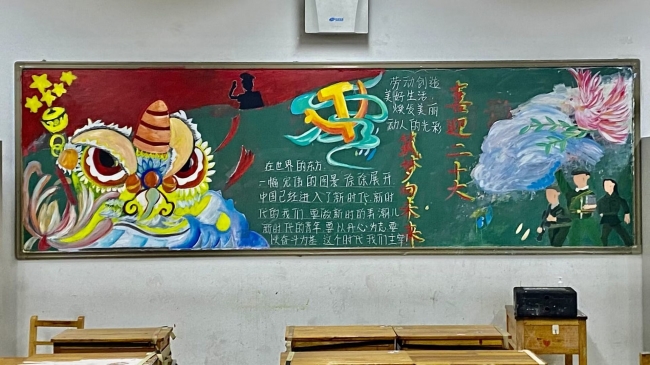 劳动创造
美好生活,
焕发美丽
动人的光彩
在世界的东方
一幅宏伟的图景徐徐展开,
中国已经进入了新时代,新时
代的我们,要做新时的弄潮儿
新时代的青年,要以丹心为志,要
奋斗为基 这个时代,我们生
梦向未来
喜迎二十大